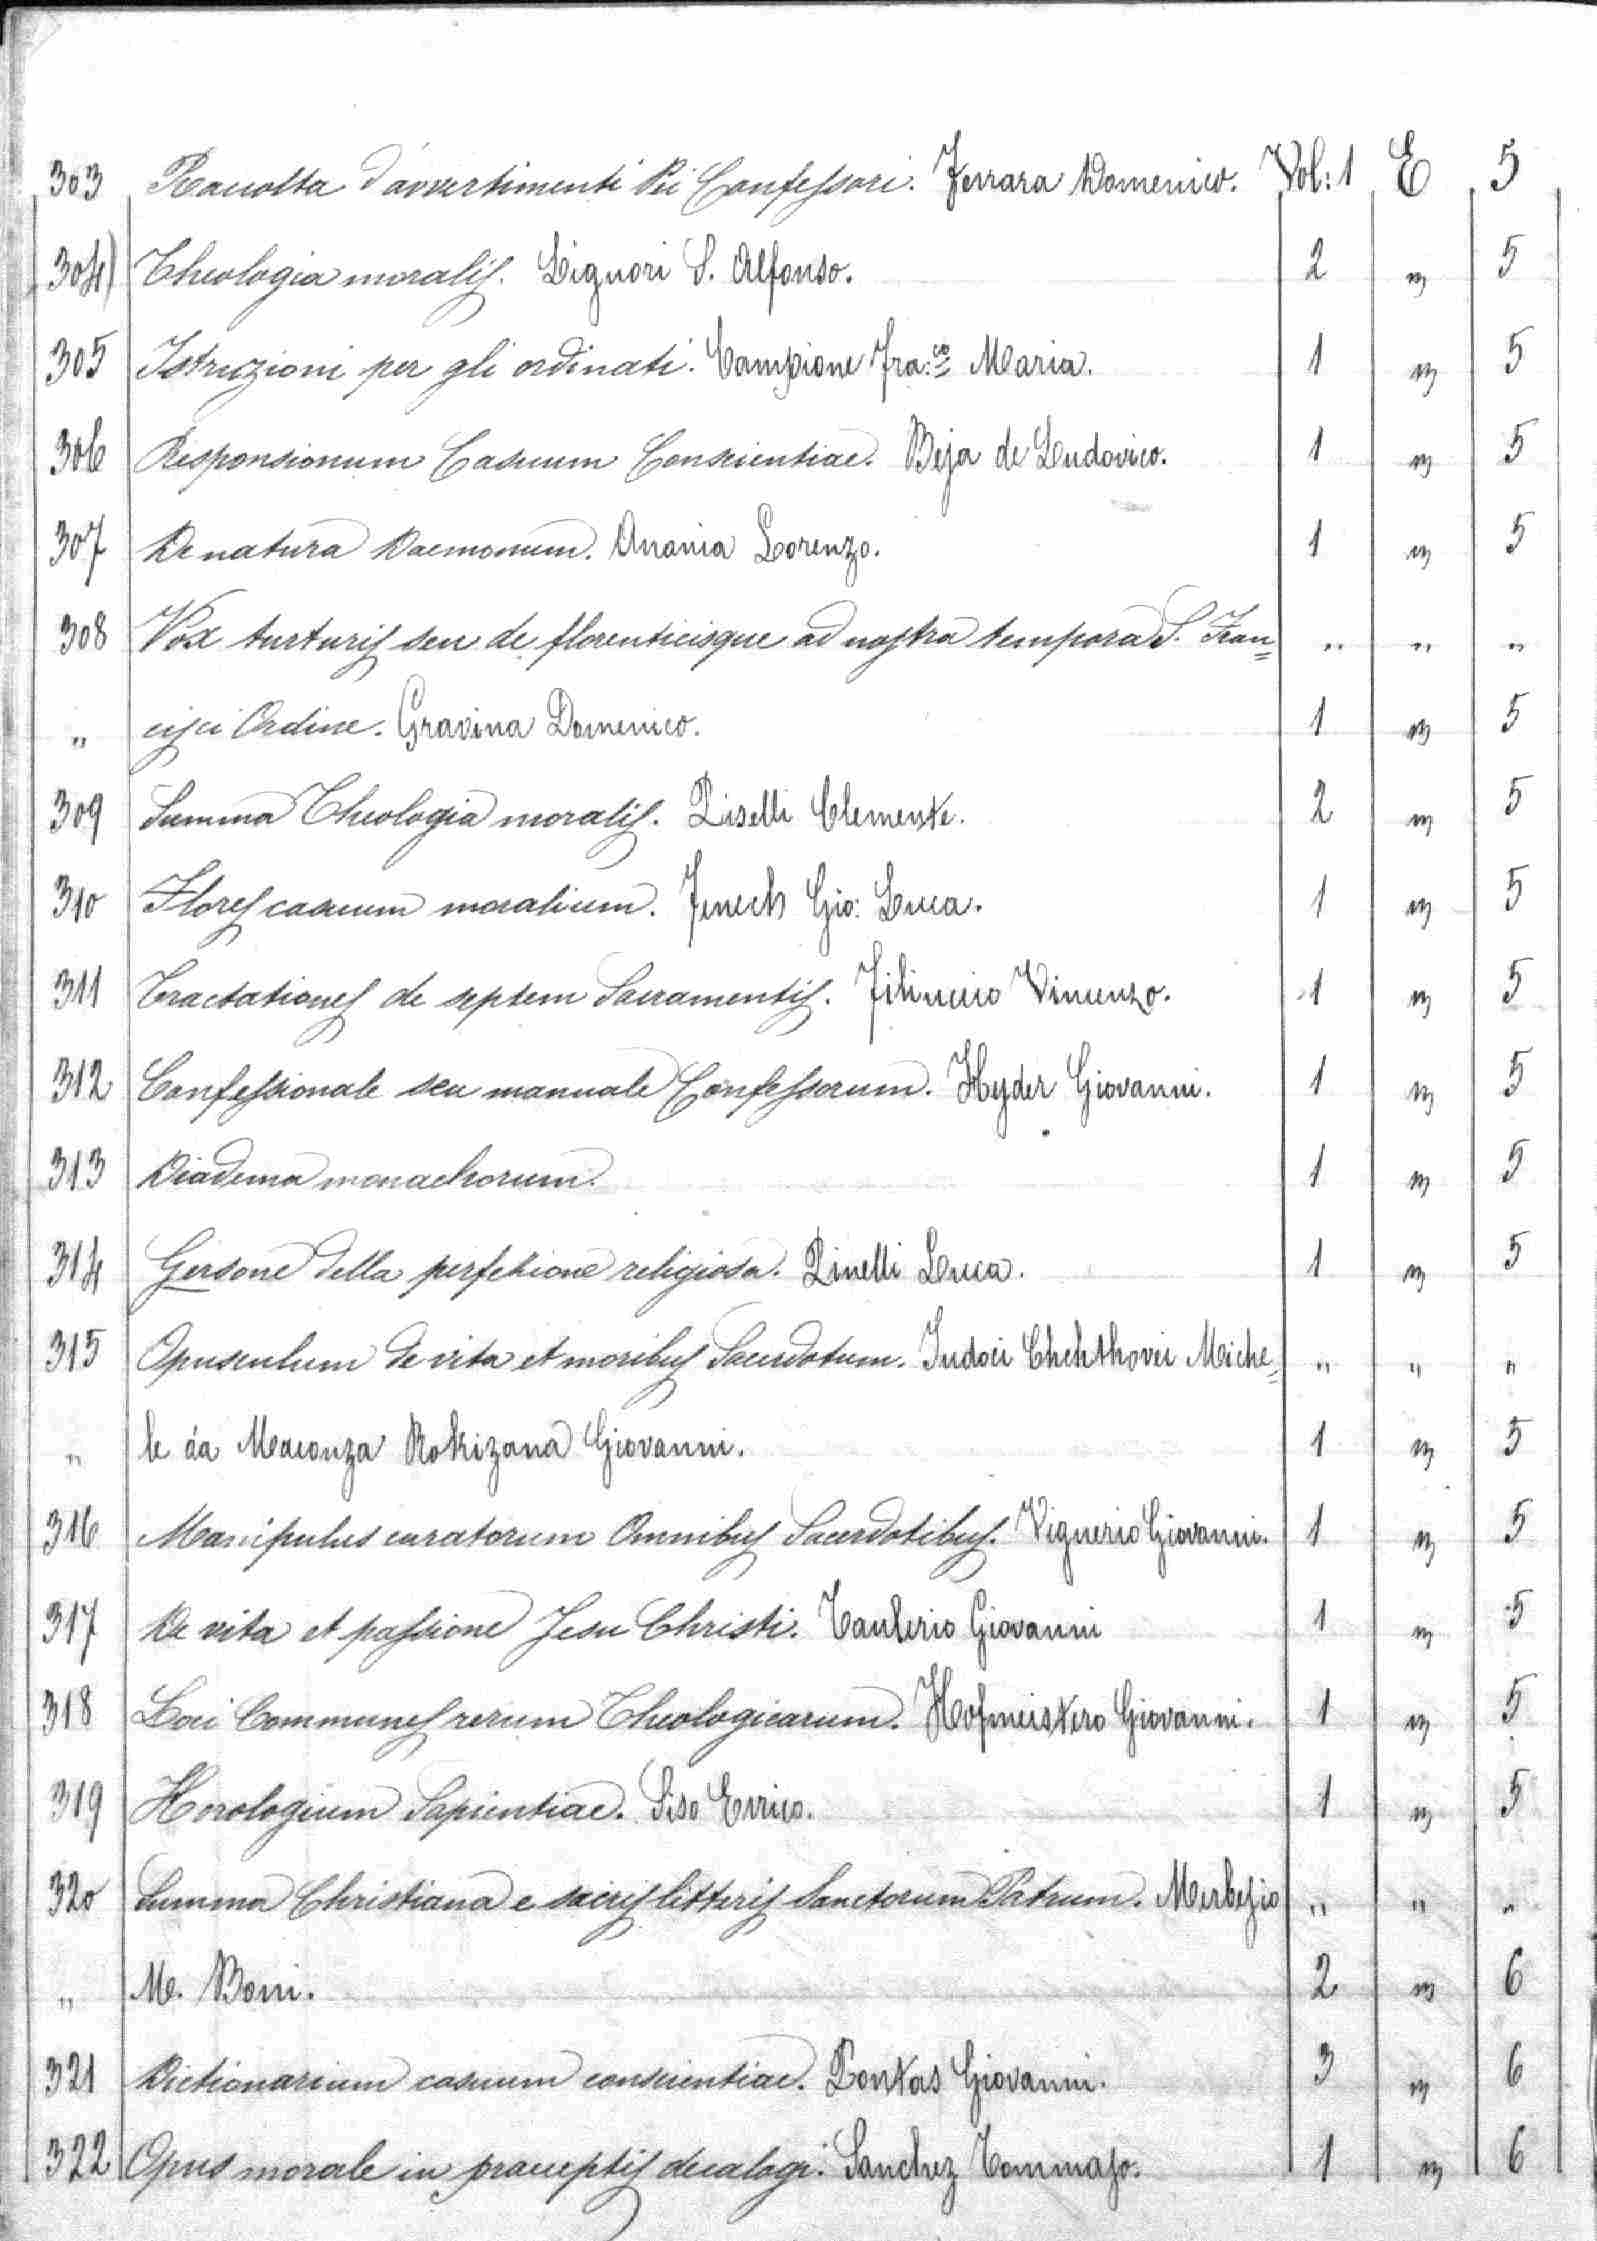 303 Raccolta d'avvertimenti Pei Confessori. Ferrara Domenico. Vol: 1 E 5
304) Theologia moralis. Liguori S. Alfonso. 2 " 5
305 Istruzioni per gli ordinati. Campione Fra:co Maria. 1 " 5
306 Responsionum Casuum Conscientiae. Beja de Ludovico. 1 " 5
307 De natura Daemonum. Anania Lorenzo. 1 " 5
308 Vox turturis seu de florenticisque ad nostra tempora S. Fran= " " "
" cisci Ordine. Gravina Domenico. 1 " 5
309 Summa Theologia moralis. Piselli Clemente. 2 " 5
310 Flores casuum moralium. Fenech Gio: Luca. 1 " 5
311 Tractationes de septem Sacramentis. Filiuccio Vincenzo. 1 " 5
312 Confessionale seu manuale Confessorum. Heyder Giovanni. 1 " 5
313 Diadema monachorum. 1 " 5
314 Gersone della perfezione religiosa. Pinelli Luca. 1 " 5
315 Opusculum de vita et moribus Sacerdotum. Judoci Chchthovei Miche= " " "
" le da Maconza Rokizana Giovanni. 1 " 5
316 Manipulus curatorum Omnibus Sacerdotibus. Viguerio Giovanni. 1 " 5
317 De vita et passione Jesu Christi. Taulerio Giovanni 1 " 5
318 Loci Communes rerum Theologicarum. Hofmeistero Giovanni. 1 " 5
319 Horologium Sapientiae. Siso Errico. 1 " 5
320 Summa Christiana e sacris litteris Sanctorum Patrum. Merbesio " " "
" M. Boni. 2 " 6
321 Dictionarium casuum conscientiae. Pontas Giovanni. 3 " 6
322 Opus morale in praeceptis decalogi. Sanchez Tommaso. 1 " 6